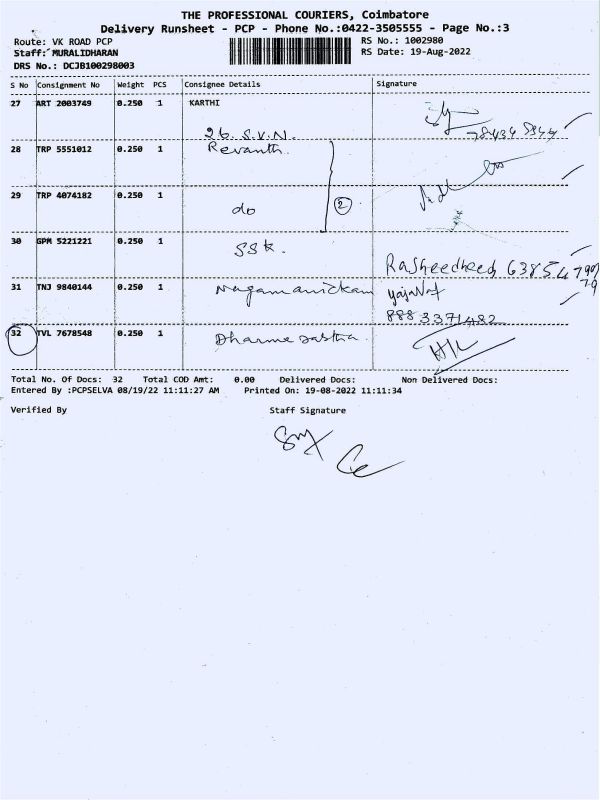 THE PROFESSIONAL COURIERS, Coimbatore
Delivery Runsheet - PCP - Phone No.:0422-3505555 - Page No.:3
Route: VK ROAD PCP RS No.: 1002980
Staff: MURALIDHARAN RS Date: 19-Aug-2022
DRS No.: DCJB100298003
S No Consignment No Weight PCS Consignee Details Signature
27 ART 2003749 0.250 1 KARTHI
26. S.V.N.
28 TRP 5551012 0.250 1 Revanth.
29 TRP 4074182 0.250 1
do 2
30 GPM 5221221 0.250 1 SSK.
Rasheedheed 63854
31 TNJ 9840144 0.250 1 Nagamanickam
888 3371482
32 TVL 7678548 0.250 1 Dharmasastha.
Total No. Of Docs: 32 Total COD Amt: 0.00 Delivered Docs: Non Delivered Docs:
Entered By :PCPSELVA 08/19/22 11:11:27 AM Printed On: 19-08-2022 11:11:34
Verified By Staff Signature